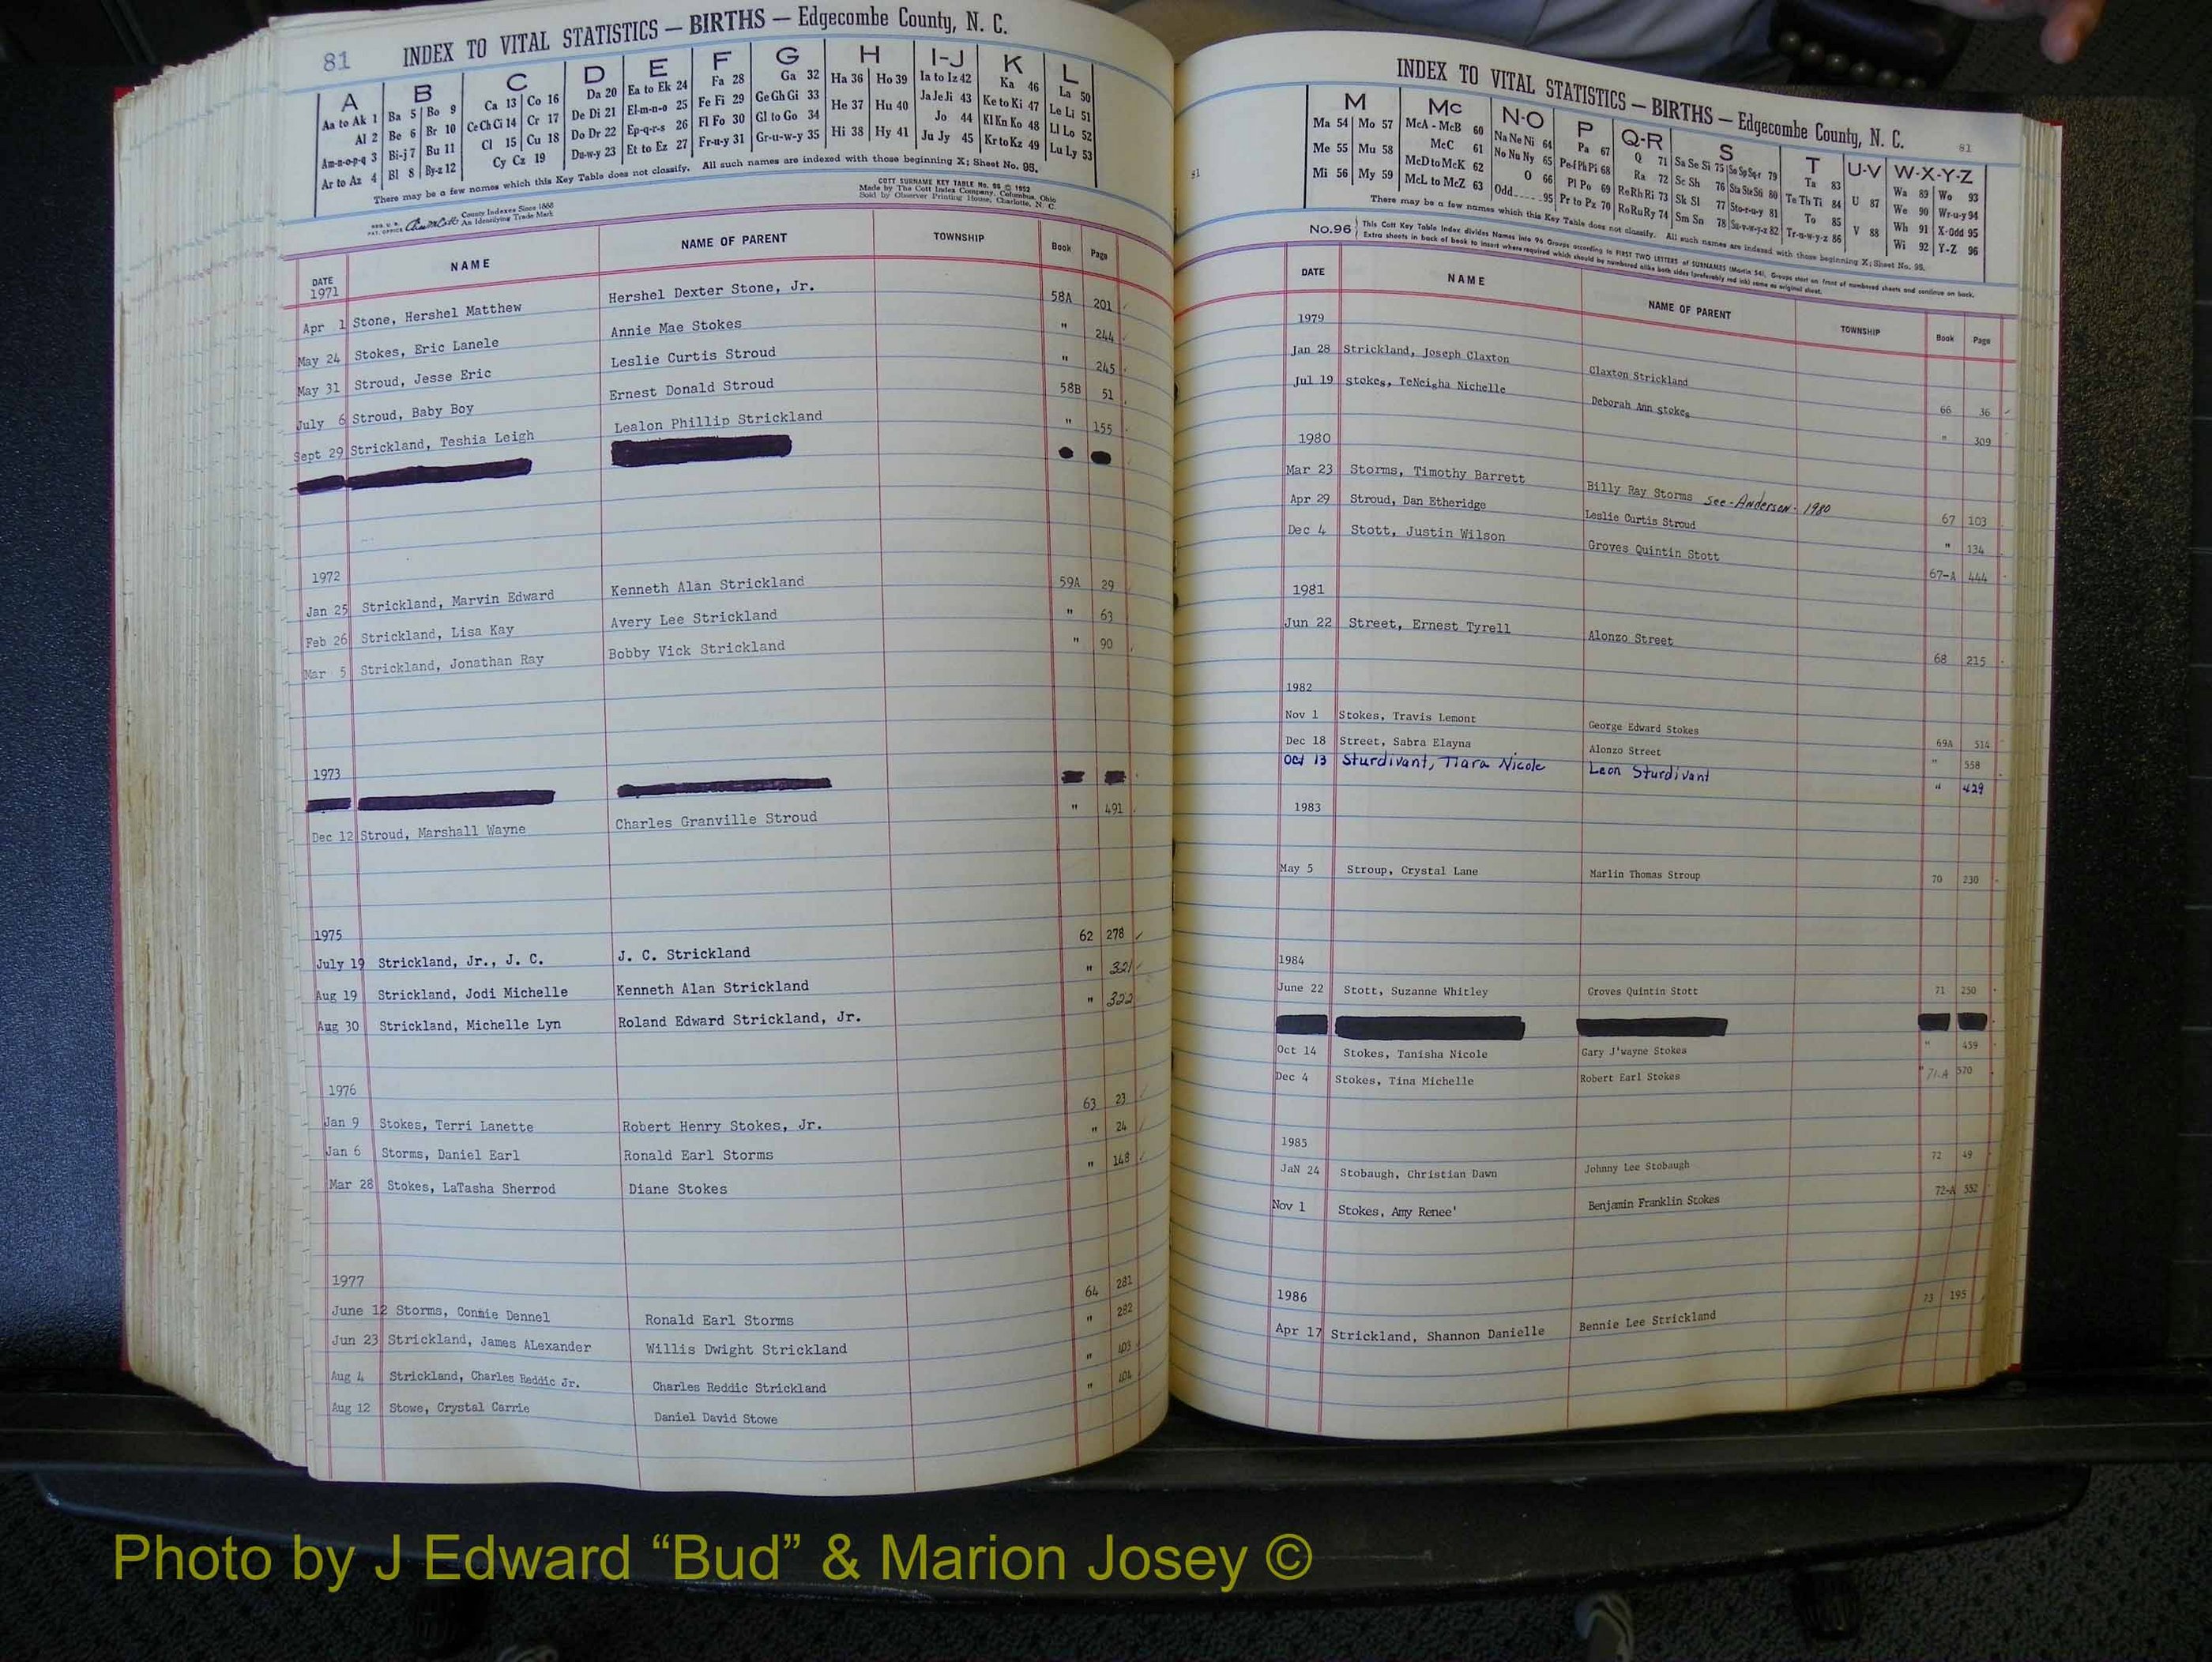 81 INDEX TO VITAL STATISTICS — BIRTHS — Edgecombe County, N. C.
A B C D E F G H I-J K L
Aa to Ak 1 Ba 5 Bo 9 Ca 13 Co 16 Da 20 Ea to Ek 24 Fa 28 Ga 32 Ha 36 Ho 39 Ia to Iz 42 Ka 46 La 50
Al 2 Be 6 Br 10 Ce Ch Ci 14 Cr 17 De Di 21 El-m-n-o 25 Fe Fi 29 Ge Gh Gi 33 He 37 Hu 40 Ja Je Ji 43 Ke to Ki 47 Le Li 51
Am-n-o-p-q 3 Bi-j 7 Bu 11 Cl 15 Cu 18 Do Dr 22 Ep-q-r-s 26 Fl Fo 30 Gl to Go 34 Hi 38 Hy 41 Jo 44 Kl Kn Ko 48 Ll Lo 52
Ar to Az 4 Bl 8 By-z 12 Cy Cz 19 Du-w-y 23 Et to Ez 27 Fr-u-y 31 Gr-u-w-y 35 Ju Jy 45 Kr to Kz 49 Lu Ly 53
There may be a few names which this Key Table does not classify. All such names are indexed with those beginning X; Sheet No. 95.
COTT SURNAME KEY TABLE No. 96 © 1952
Made by The Cott Index Company, Columbus, Ohio
Sold by Observer Printing House, Charlotte, N. C.
County Indexes Since 1888
An Identifying Trade Mark
DATE NAME NAME OF PARENT TOWNSHIP Book Page
1971
Apr 1 Stone, Hershel Matthew Hershel Dexter Stone, Jr. 58A 201
May 24 Stokes, Eric Lanele Annie Mae Stokes " 244
May 31 Stroud, Jesse Eric Leslie Curtis Stroud " 245
July 6 Stroud, Baby Boy Ernest Donald Stroud 58B 51
Sept 29 Strickland, Teshia Leigh Lealon Phillip Strickland " 155
1972
Jan 25 Strickland, Marvin Edward Kenneth Alan Strickland 59A 29
Feb 26 Strickland, Lisa Kay Avery Lee Strickland " 63
Mar 5 Strickland, Jonathan Ray Bobby Vick Strickland " 90
1973
Dec 12 Stroud, Marshall Wayne Charles Granville Stroud " 491
1975
July 19 Strickland, Jr., J. C. J. C. Strickland 62 278
Aug 19 Strickland, Jodi Michelle Kenneth Alan Strickland " 321
Aug 30 Strickland, Michelle Lyn Roland Edward Strickland, Jr. " 322
1976
Jan 9 Stokes, Terri Lanette Robert Henry Stokes, Jr. 63 23
Jan 6 Storms, Daniel Earl Ronald Earl Storms " 24
Mar 28 Stokes, LaTasha Sherrod Diane Stokes " 148
1977
June 12 Storms, Connie Dennel Ronald Earl Storms 64 281
Jun 23 Strickland, James ALexander Willis Dwight Strickland " 282
Aug 4 Strickland, Charles Reddic Jr. Charles Reddic Strickland " 403
Aug 12 Stowe, Crystal Carrie Daniel David Stowe " 404
INDEX TO VITAL STATISTICS — BIRTHS — Edgecombe County, N. C. 81
81
M Mc N-O P Q-R S T U-V W-X-Y-Z
Ma 54 Mo 57 McA - McB 60 Na Ne Ni 64 Pa 67 Q 71 Sa Se Si 75 So Sp Sq-r 79 Ta 83 U 87 Wa 89 Wo 93
Me 55 Mu 58 McC 61 No Nu Ny 65 Pe-f Ph Pi 68 Ra 72 Sc Sh 76 Sta Ste Sti 80 Te Th Ti 84 V 88 We 90 Wr-u-y 94
Mi 56 My 59 McD to McK 62 O 66 Pl Po 69 Re Rh Ri 73 Sk Sl 77 Sto-r-u-y 81 To 85 Wh 91 X-Odd 95
McL to McZ 63 Odd 95 Pr to Pz 70 Ro Ru Ry 74 Sm Sn 78 Su-v-w-y-z 82 Tr-u-w-y-z 86 Wi 92 Y-Z 96
There may be a few names which this Key Table does not classify. All such names are indexed with those beginning X; Sheet No. 95.
No.96 This Cott Key Table Index divides Names into 96 Groups according to FIRST TWO LETTERS of SURNAMES (Martin 54). Groups start on front of numbered sheets and continue on back.
Extra sheets in back of book to insert where required which should be numbered alike both sides (preferably red ink) same as original sheet.
DATE NAME NAME OF PARENT TOWNSHIP Book Page
1979
Jan 28 Strickland, Joseph Claxton Claxton Strickland 66 36
Jul 19 stokes, TeNeigha Nichelle Deborah Ann stokes " 309
1980
Mar 23 Storms, Timothy Barrett Billy Ray Storms see - Anderson - 1980 67 103
Apr 29 Stroud, Dan Etheridge Leslie Curtis Stroud " 134
Dec 4 Stott, Justin Wilson Groves Quintin Stott 67-A 444
1981
Jun 22 Street, Ernest Tyrell Alonzo Street 68 215
1982
Nov 1 Stokes, Travis Lemont George Edward Stokes 69A 514
Dec 18 Street, Sabra Elayna Alonzo Street " 558
Oct 13 Sturdivant, Tiara Nicole Leon Sturdivant " 429
1983
May 5 Stroup, Crystal Lane Marlin Thomas Stroup 70 230
1984
June 22 Stott, Suzanne Whitley Groves Quintin Stott 71 250
Oct 14 Stokes, Tanisha Nicole Gary J'wayne Stokes " 459
Dec 4 Stokes, Tina Michelle Robert Earl Stokes " 71-A 570
1985
JaN 24 Stobaugh, Christian Dawn Johnny Lee Stobaugh 72 49
Nov 1 Stokes, Amy Renee' Benjamin Franklin Stokes 72-A 552
1986
Apr 17 Strickland, Shannon Danielle Bennie Lee Strickland 73 195
Photo by J Edward “Bud” & Marion Josey ©